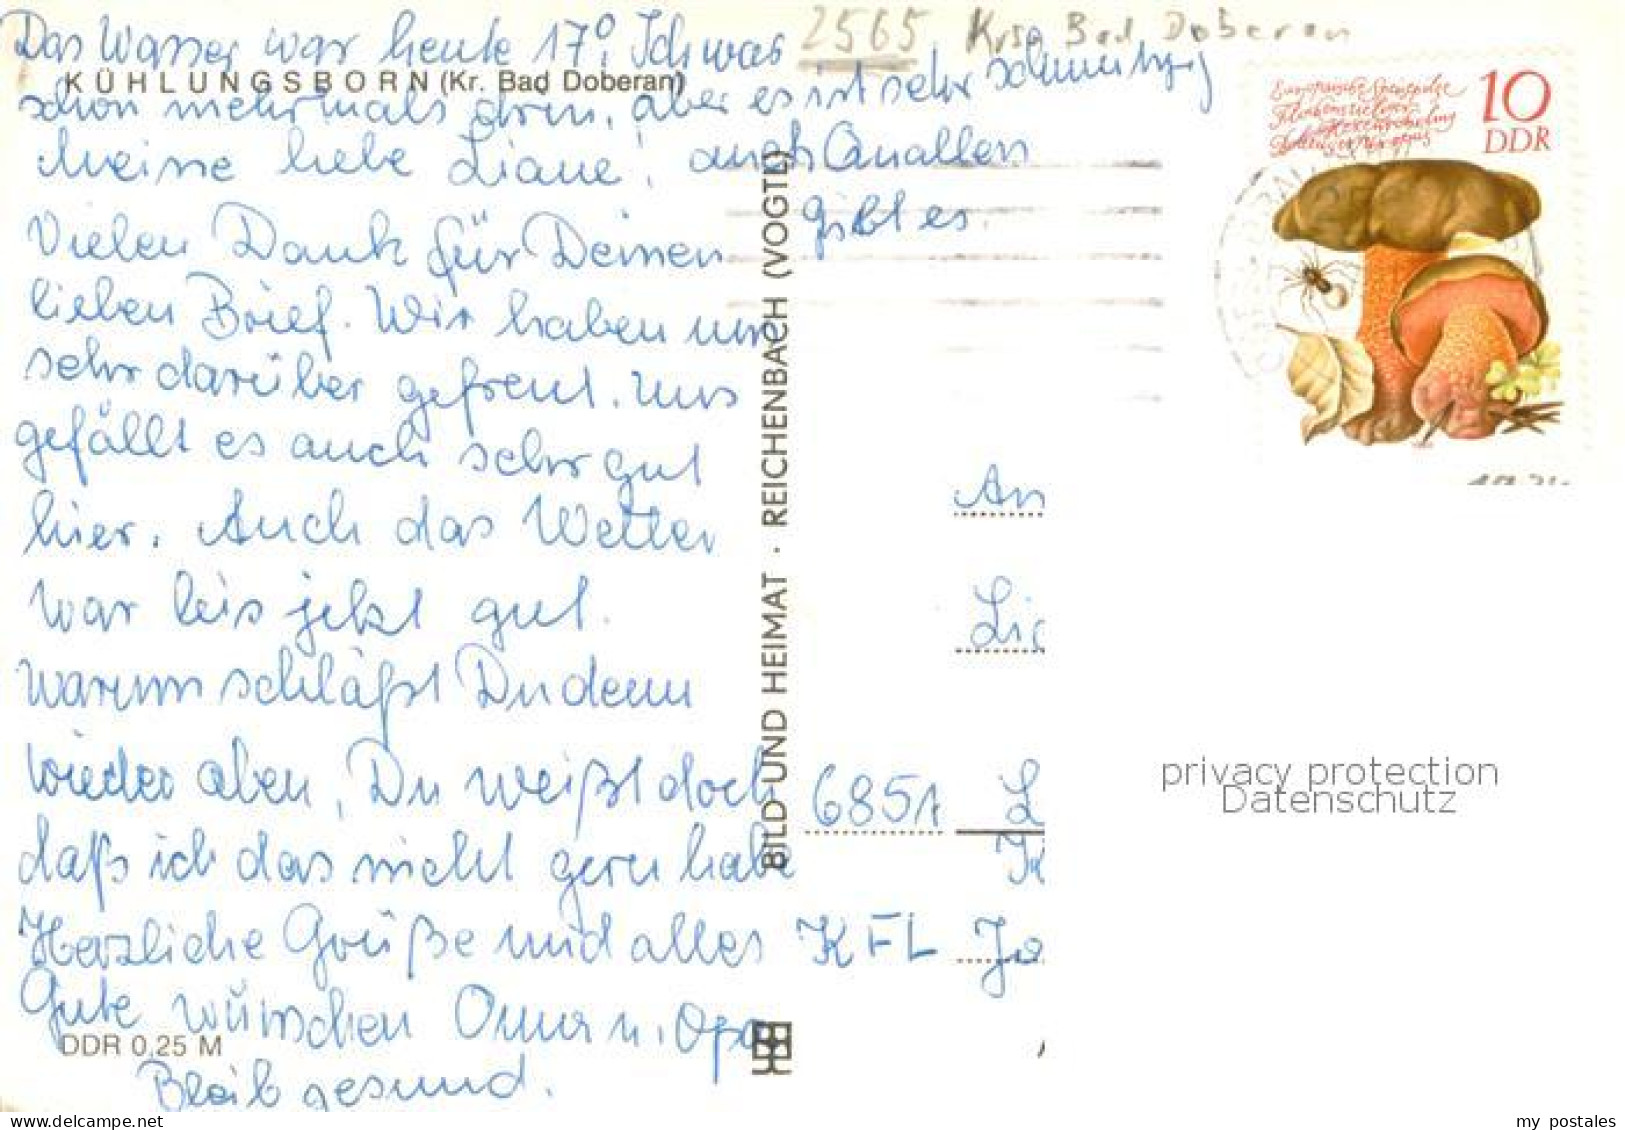 Das Wasser war heute 17°. Ich war
schon mehrmals drin, aber es ist sehr schmutzig
auch Quallen
gibt es.
2565 Bad Doberan
KÜHLUNGSBORN (Kr. Bad Doberan)
Meine liebe Liane!
Vielen Dank für Deinen
lieben Brief. Wir haben uns
sehr darüber gefreut. Uns
gefällt es auch sehr gut
hier. Auch das Wetter
war bis jetzt gut.
Warum schläfst Du denn
wieder oben, Du weißt doch
daß ich das nicht gern habe
Herzliche Grüße und alles
Gute wünschen Oma u. Opa
Bleib gesund.
DDR 0,25 M
BILD UND HEIMAT · REICHENBACH (VOGTL)
10
DDR
An
6851
KFL
privacy protection
Datenschutz
my postales